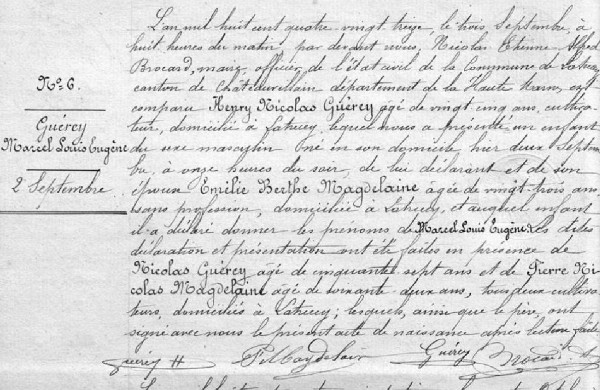 L'an mil huit cent quatre vingt treize, le trois Septembre, à
huit heures du matin, par devant nous, Nicolas Etienne Alfred
Brocard, maire, officier de l'état civil de la Commune de
canton de Châteauvillain département de la Haute Marne, est
comparu Henry Nicolas Guérey âgé de vingt cinq ans, cultiva-
teur, domicilié à Latrecey, lequel nous a présenté un enfant
du sexe masculin né en son domicile hier deux Septem
bre, à onze heures du soir, de lui déclarant et de son
épouse Emilie Berthe Magdelaine âgée de vingt-trois ans,
sans profession, domiciliée à Latrecey, et auquel enfant
il a déclaré donner les prénoms de Marcel Louis Eugène. Les dites
déclaration et présentation ont été faites en présence de
Nicolas Guérey âgé de cinquante sept ans et de Pierre Ni-
colas Magdelaine âgé de soixante deux ans, tous deux cultiva-
teurs, domiciliés à Latrecey; lesquels, ainsi que le père, ont
signé avec nous le présent acte de naissance après lecture faite
Guérey H Guérey Brocard
N° 6.
Guérey
Marcel Louis Eugène
2 Septembre